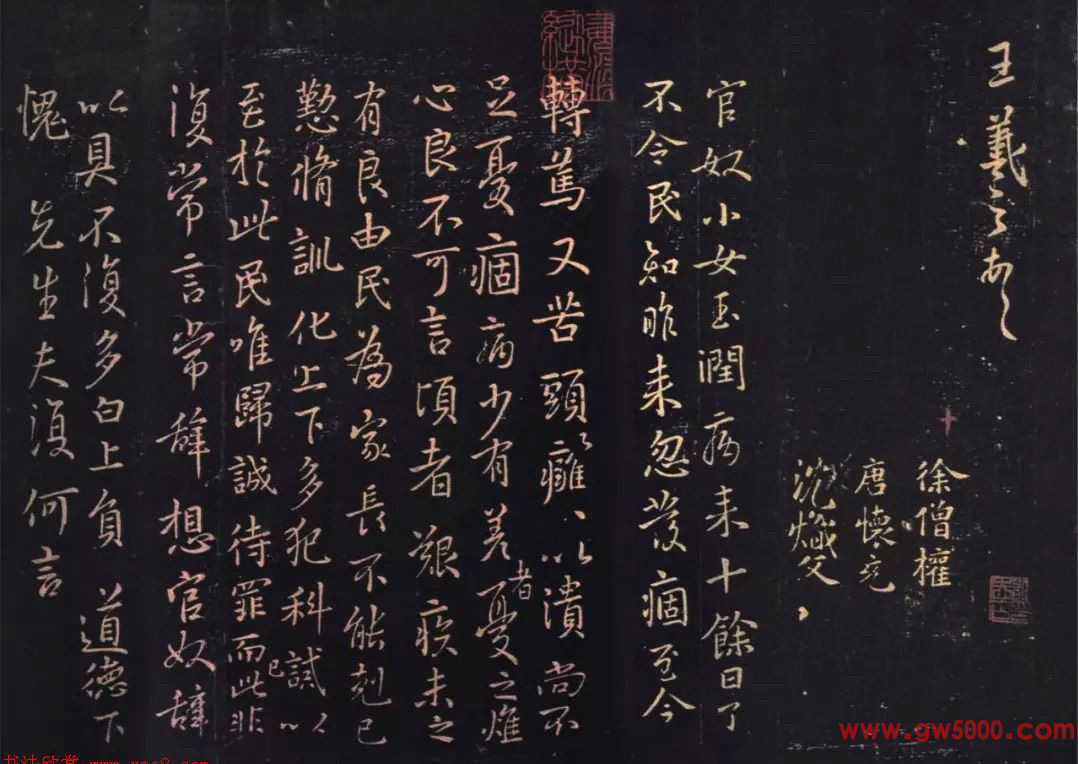 王羲之
徐僧權
唐懷充
沈熾文
官奴小女玉潤病來十餘日了
不令民知昨來忽發痼至今
轉篤又苦頭〻癰〻以潰尚不
足憂痼病少有差者憂之燋
心良不可言頃者艱疾未之
有良由民為家長不能剋己
懃脩訓化上下多犯科誡以
至於此民唯歸誠待罪而已此非
復常言常辭想官奴辭
以具不復多白上負 道德下
愧 先生夫復何言
www.gw5000.com